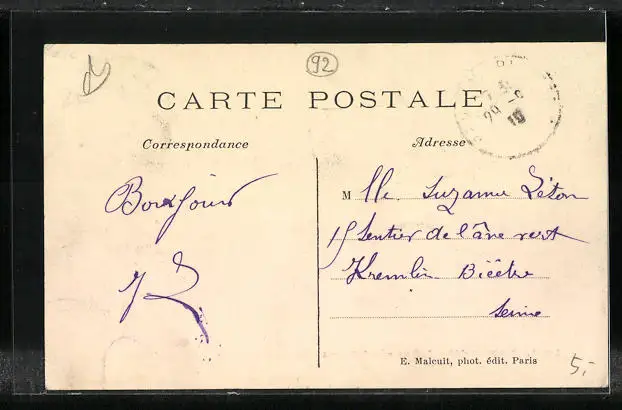 92
CARTE POSTALE
Correspondance
Adresse
Bonjour
M lle. Suzanne Léton
15 Sentier de l'âne vert
Kremlin Bicêtre
Seine
E. Malcuit, phot. édit. Paris
5,-